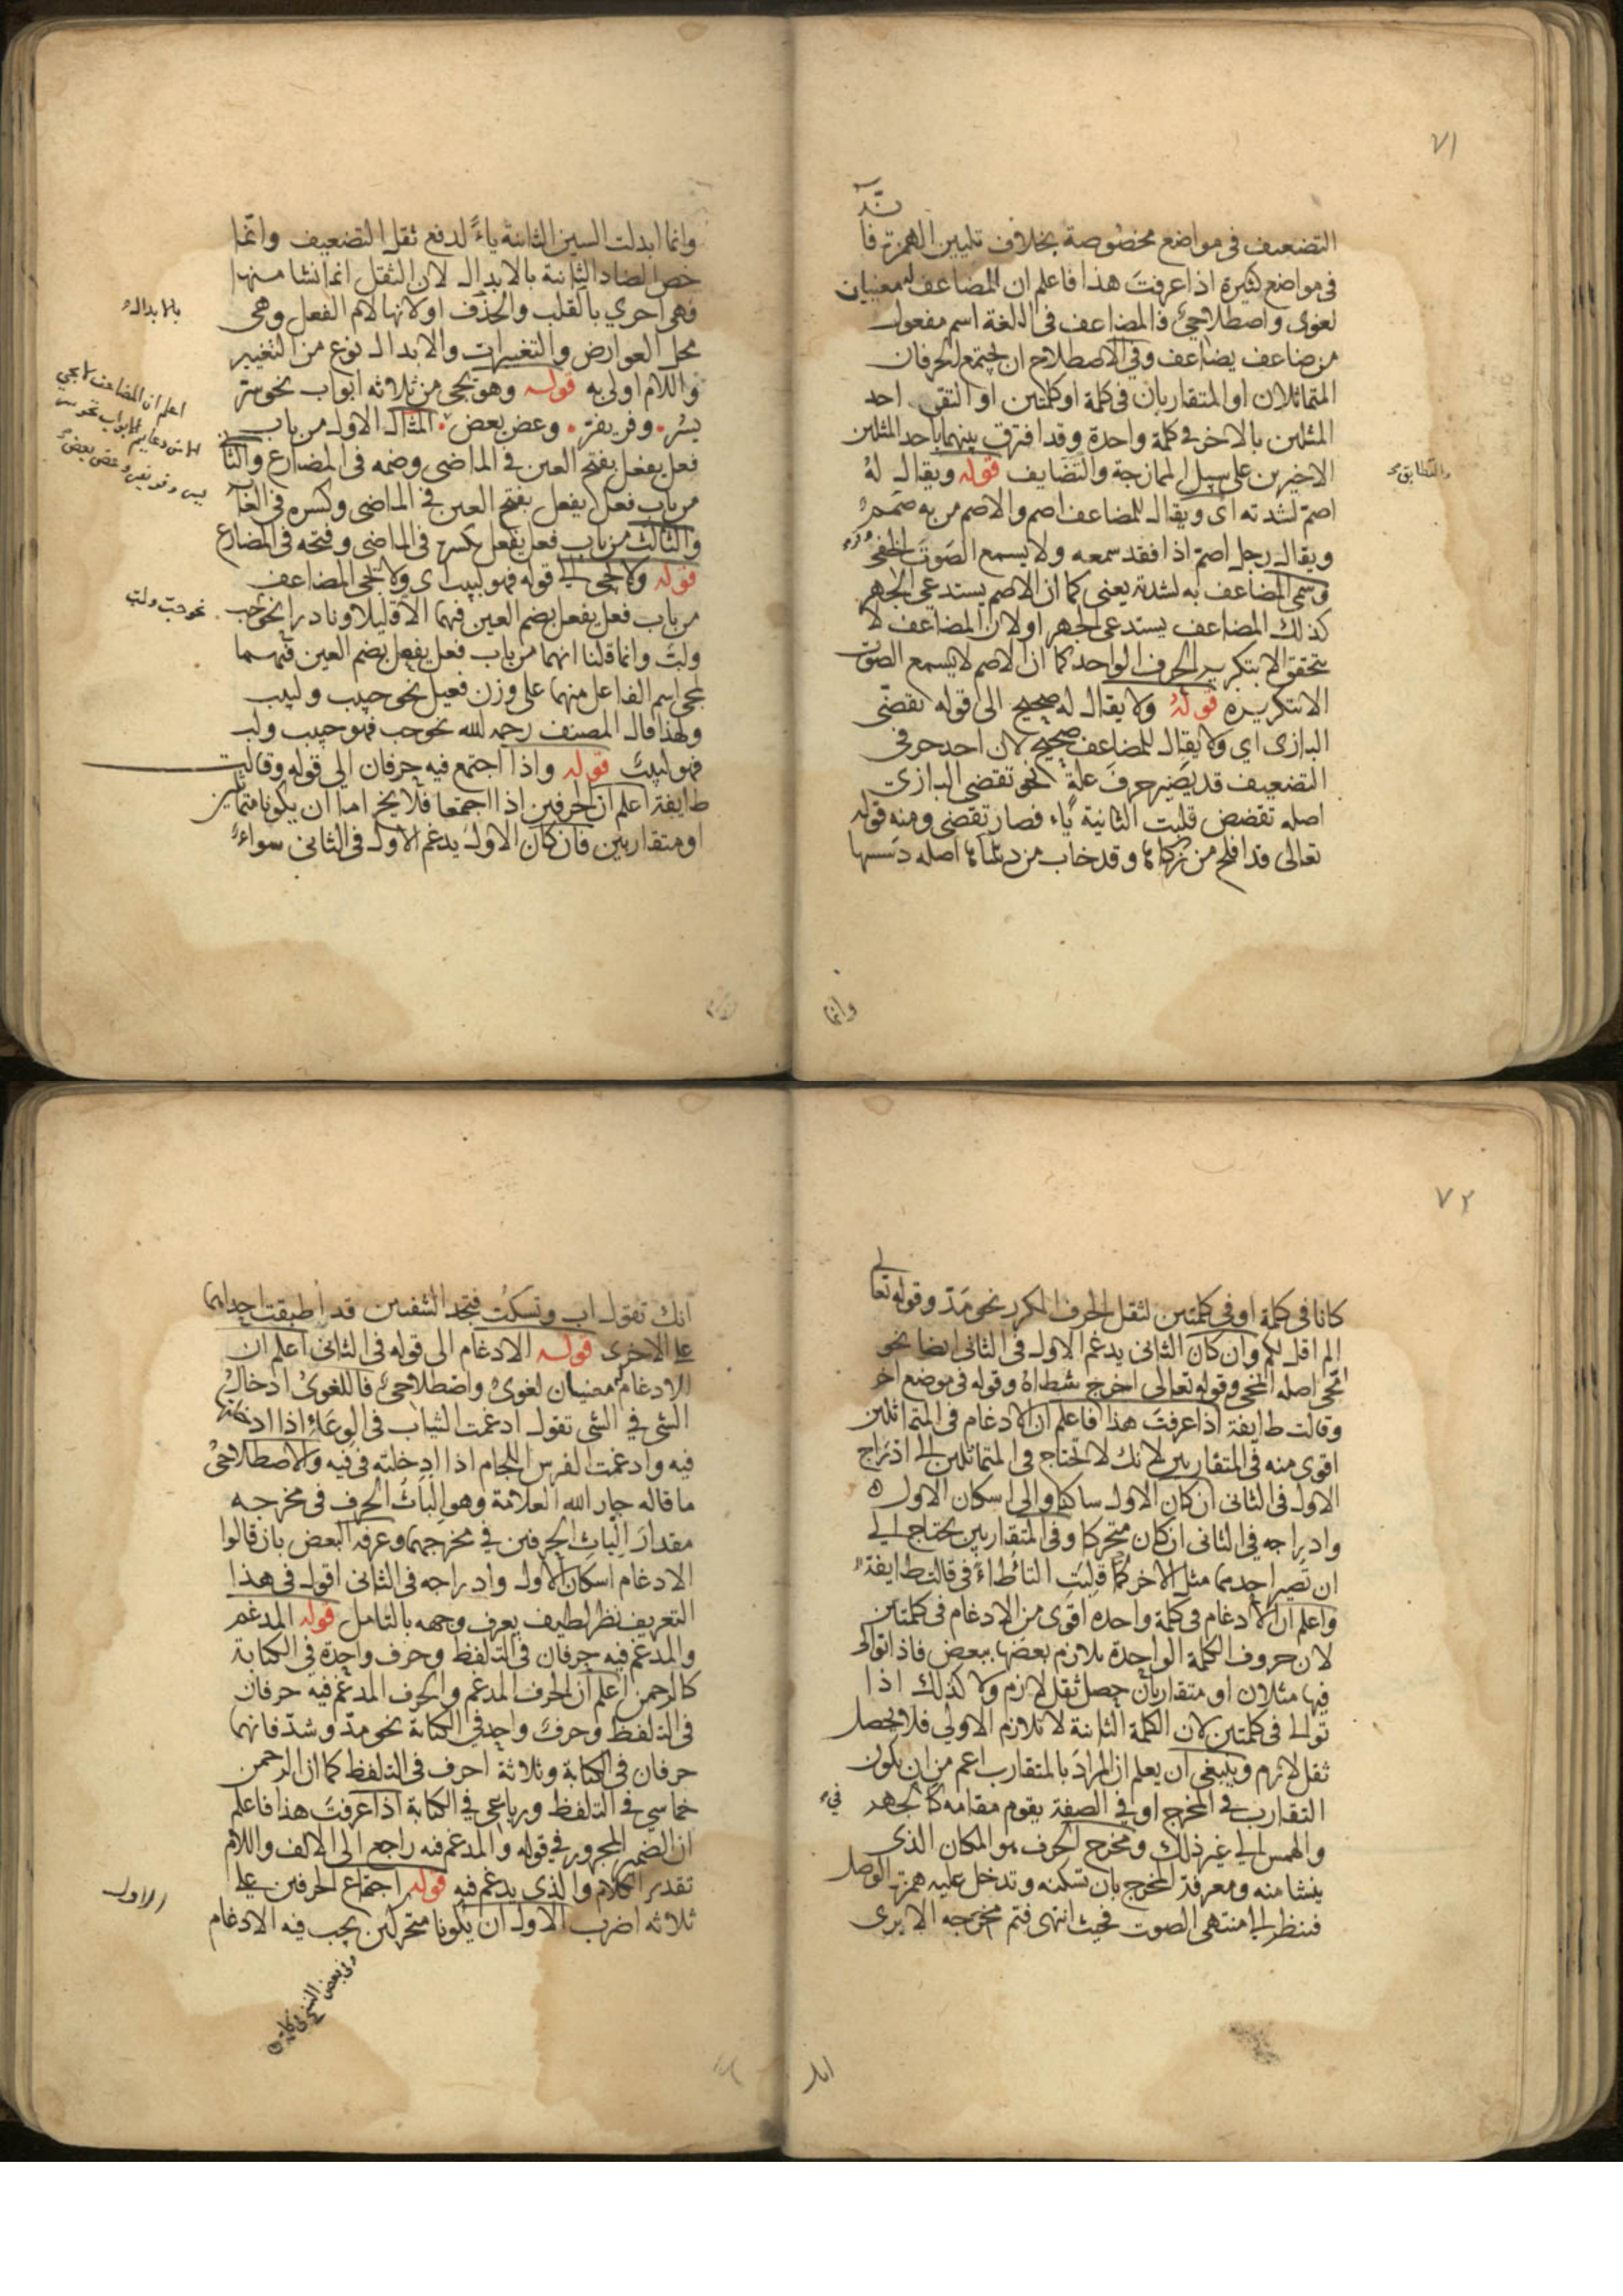 ٧١
التضعيف في مواضع مخصوصة بخلاف تليين الهمزة فا
في مواضع كثيرة اذا عرفت هذا فاعلم ان للمضاعف له معنيان
لغوى واصطلاحي فالمضاعف في اللغة اسم مفعول
من ضاعف يضاعف وفي الاصطلاح ان يجتمع الحرفان
المتماثلان او المتقاربان في كلمة او كلمتين او التقى احد
المثلين بالاخر في كلمة واحدة وقد افترق بينهما باحد المثلين
الاخيرين على سبيل الممازجة والتضايف قوله ويقال له
اصم لشدته اى ويقال للمضاعف اصم والاصم من به صمم
ويقال رجل اصم اذا فقد سمعه ولا يسمع الصوت الخفي
وسمى المضاعف به لشدته يعنى كما ان الاصم يستدعى الجهر
كذلك المضاعف يستدعى الجهر او لان المضاعف لا
يتحقق الا بتكرير الحرف الواحد كما ان الاصم لا يسمع الصوت
الا بتكريره قوله ولا يقال له صحيح الى قوله تقضى
البازى اي ولا يقال للمضاعف صحيح لان احد حرفى
التضعيف قد يصير حرف علة نحو تقضى البازى
اصله تقضض قلبت الثانية ياء فصار تقضى ومنه قوله
تعالى قد افلح من زكاها وقد خاب من دساها اصله دسسها
وانما
وانما ابدلت السين الثانية ياءً لدفع ثقل التضعيف وانما
خص الضاد الثانية بالابدال لان الثقل انما نشا منها
فهي احرى بالقلب والحذف او لانها لام الفعل وهى
محل العوارض والتغييرات والابدال نوع من التغيير
واللام اولى به قوله وهو يجى من ثلاثه ابواب نحو سر
يسر وفر يفر وعض يعض المثال الاول من باب
فعل يفعل بفتح العين في الماضى وضمه فى المضارع والثا
من باب فعل يفعل بفتح العين في الماضى وكسره فى الغا
والثالث من باب فعل يفعل بكسره فى الماضى وفتحه فى المضارع
قوله ولا يجى الى قوله فهو لبيب اي ولا يجى المضاعف
من باب فعل يفعل بضم العين فيهما الا قليلا ونادرا نحو حب
ولب وانما قلنا انهما من باب فعل يفعل بضم العين فيهما
لمجى اسم الفاعل منهما على وزن فعيل نحو حبيب ولبيب
ولهذا قال المصنف رحمه الله نحو حب فهو حبيب ولب
فهو لبيب قوله واذا اجتمع فيه حرفان الى قوله وقالت
طايفة اعلم ان الحرفين اذا اجتمعا فلا يخ اما ان يكونا متماثلين
او متقاربين فان كان الاول يدغم الاول فى الثانى سواء
بالابدال
اعلم ان المضاعف لا يجي
نحو حب ولب
٧٢
كانا فى كلمة او فى كلمتين لثقل الحرف المكرر نحو مدّ وقوله تعالى
الم اقل لكم وان كان الثانى يدغم الاول فى الثانى ايضا نحو
امحى اصله انمحى وقوله تعالى اخرج شطاه وقوله فى موضع اخر
وقالت طايفة اذا عرفت هذا فاعلم ان الادغام فى المتماثلين
اقوى منه فى المتقاربين لانك لا تحتاج فى المتماثلين الى ادراج
الاول فى الثانى ان كان الاول ساكنا والى اسكان الاول
وادراجه فى الثانى ان كان متحركا وفى المتقاربين يحتاج الى
ان تصير احدهما مثل الاخر كما قلبت التا طاء فى قالت طايفة
واعلم ان الادغام فى كلمة واحدة اقوى من الادغام فى كلمتين
لان حروف الكلمة الواحدة يلازم بعضها ببعض فاذا توالى
فيها مثلان او متقاربان حصل ثقل لازم ولا كذلك اذا
توالى فى كلمتين لان الكلمة الثانية لا تلازم الاولى فلا يحصل
ثقل لازم وينبغى ان يعلم ان المراد بالمتقارب اعم من ان يكون
التقارب فى المخرج او فى الصفة يقوم مقامه كالجهر
والهمس الى غير ذلك ومخرج الحرف هو المكان الذى
ينشا منه ومعرفة المخرج بان تسكنه وتدخل عليه همزة الوصل
فينظر الى منتهى الصوت فحيث انتهى فثم مخرجه الا يرى
انك
انك تقول اب وتسكت فتجد الشفتين قد اطبقت احداهما
على الاخرى قوله الادغام الى قوله فى الثانى اعلم ان
الادغام له معنيان لغوى واصطلاحى فاللغوى ادخال
الشى في الشى تقول ادغمت الثياب فى الوعاء اذا ادخلتها
فيه وادغمت الفرس اللجام اذا ادخلته فى فيه والاصطلاحى
ما قاله جار الله العلامة وهو الباث الحرف فى مخرجه
مقدار الباث الحرفين في مخرجهما وعرفه البعض بان قالوا
الادغام اسكان الاول وادراجه فى الثانى اقول فى هذا
التعريف نظر لطيف يعرف وجهه بالتامل قوله المدغم
والمدغم فيه حرفان فى التلفظ وحرف واحدة فى الكتابة
كالرحمن اعلم ان الحرف المدغم والحرف المدغم فيه حرفان
فى التلفظ وحرف واحد فى الكتابة نحو مدّ وشدّ فانهما
حرفان فى الكتابة وثلاثة احرف فى التلفظ كما ان الرحمن
خماسي فى التلفظ ورباعى في الكتابة اذا عرفت هذا فاعلم
ان الضمير المجرور في قوله والمدغم فيه راجع الى الالف واللام
تقدير الكلام والذى يدغم فيه قوله اجتماع الحرفين على
ثلاثه اضرب الاول ان يكونا متحركين يجب فيه الادغام
الاول
وفى بعض النسخ